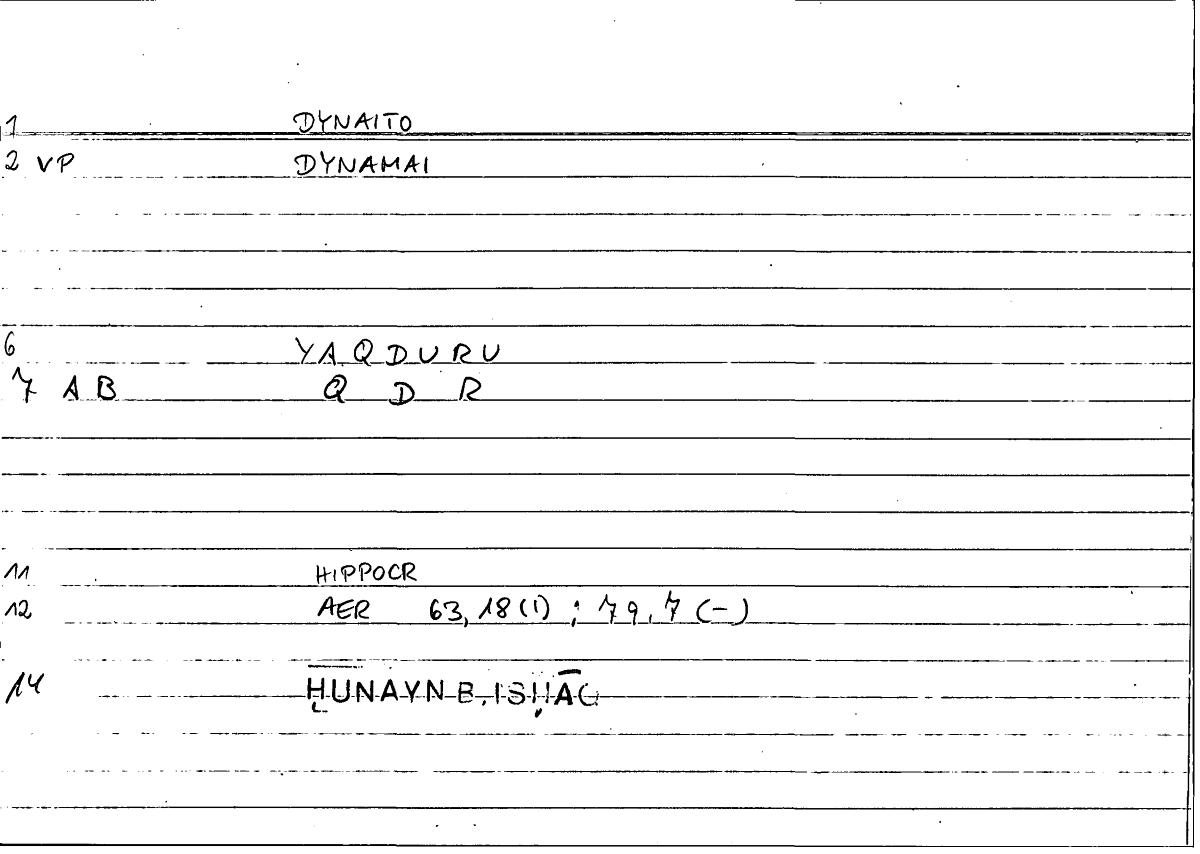 1 DYNAITO
2 VP DYNAMAI
6 YAQDURU
7 AB Q D R
11 HIPPOCR
12 AER 63,18(1) ; 79,7(-)
14 ḤUNAYN B. ISḤĀQ